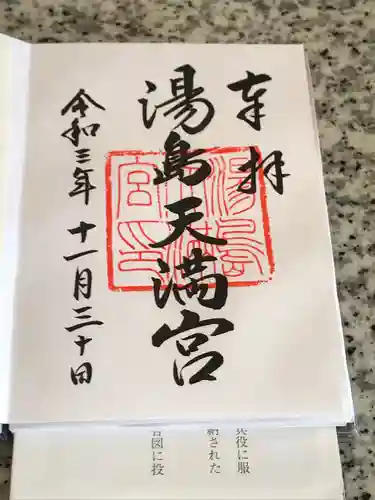 奉拝
湯島天満宮
令和三年十一月三十日
兵役に服
納された
図に投